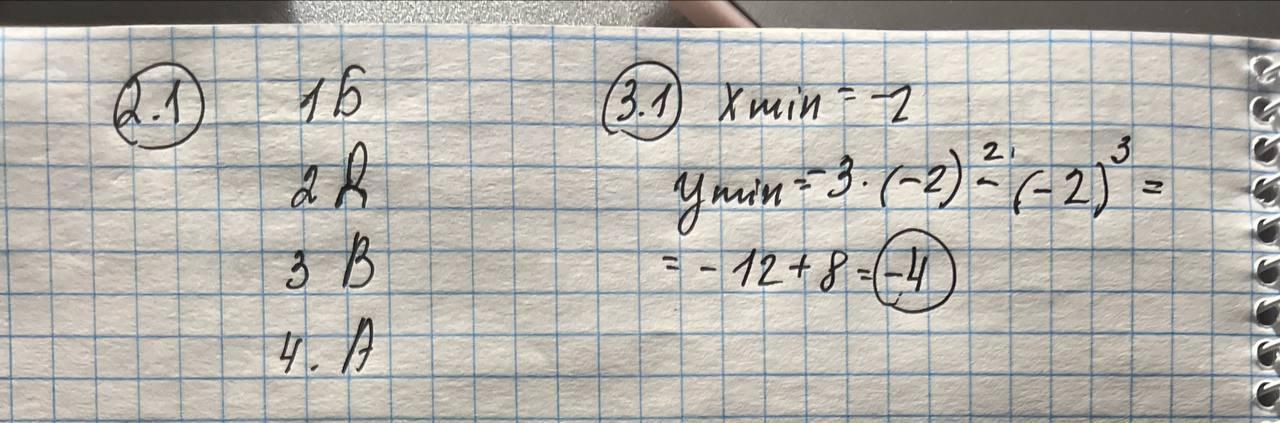 2.1 1 Б
2 Д
3 В
4. А
3.1 x min = -2
y min = -3 · (-2)² - (-2)³ =
= - 12 + 8 = -4